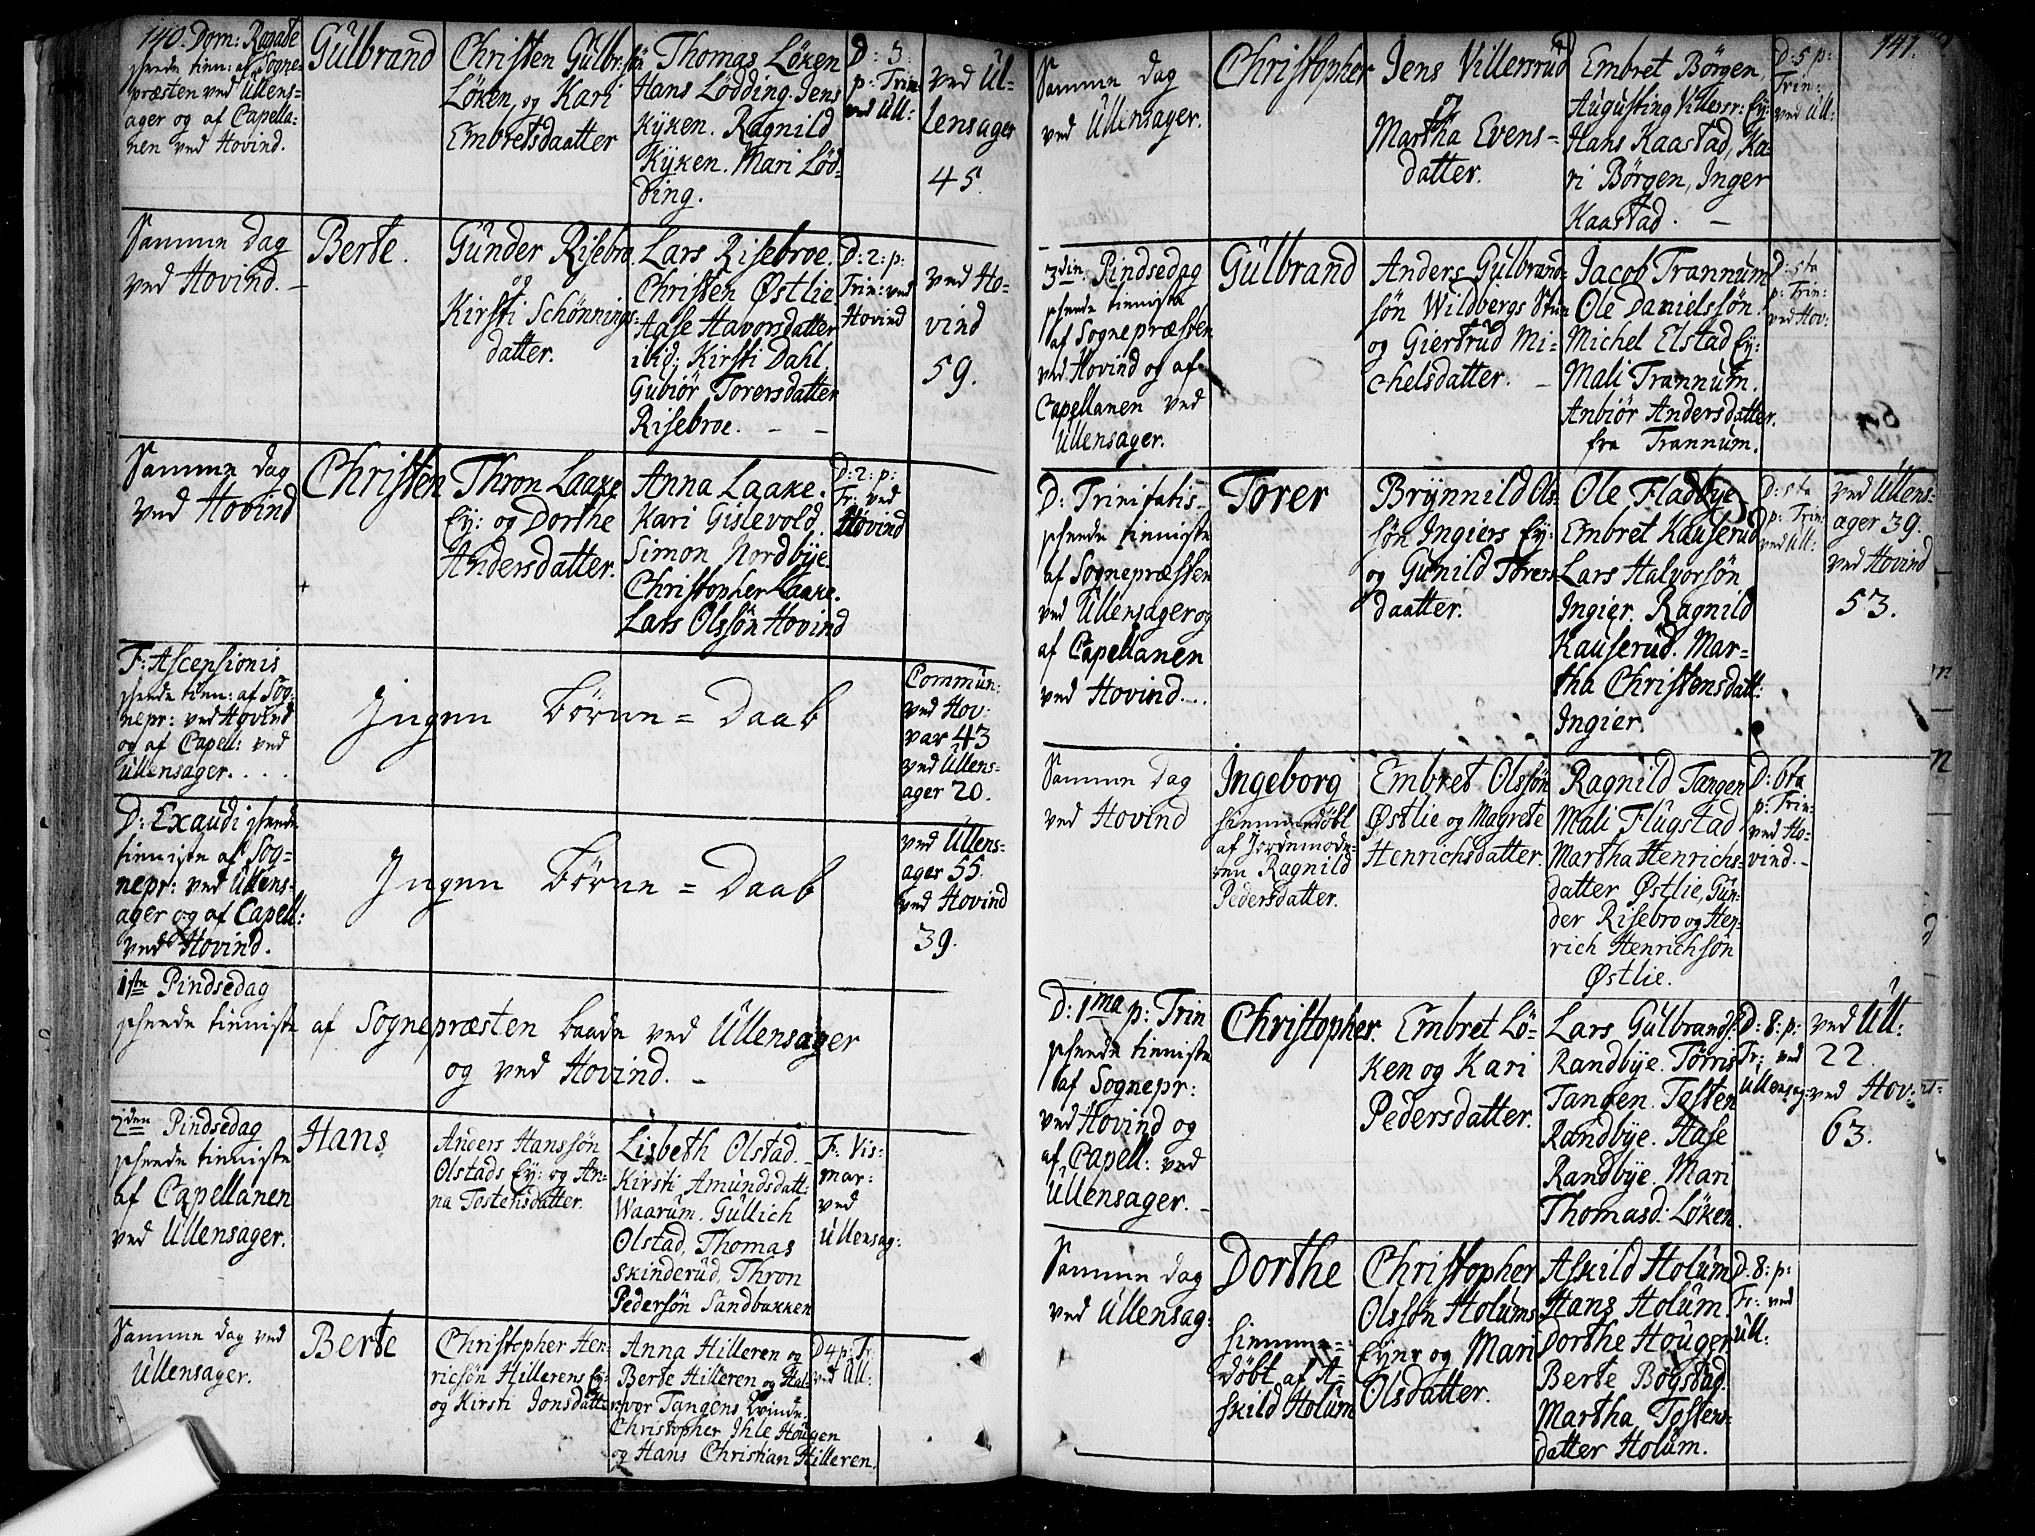 140. Dom: Rogate
tien: af Sogne-
præsten ved Ullens-
ager og af Capella-
nen ved Hovind.
Gulbrand
Christen Gulbr:søn
Løken, og Kari
Embretsdaatter
Thomas Løken
Hans Lødding. Jens
Kyken. Ragnild
Kyken. Mari Lød-
ding.
D: 3.
p: Trin:
ved Ull:
ved Ul-
lensager
45.
Samme Dag
ved Hovind. –
Berte.
Gunder Risebro.
og
Kirsti Schønnings-
datter.
Lars Risebroe.
Christen Østlie
Aase Havorsdatter
ibid; Kirsti Dahl,
Gubiør Torersdatter
Risebroe. – –
D: 2: p:
Trin: ved
Hovind
ved Ho-
vind
59.
Samme Dag
ved Hovind
Christen
Thron Laake
Ey: og Dorthe
Andersdatter.
Anna Laake.
Kari Gislevold.
Simon Nordbÿe.
Christopher Laake.
Lars Olssøn Hovind
D: 2: p:
Tr: ved
Hovind
F: Ascensionis
tien: af Sog-
nepr: ved Hovind
og af Capell: ved
Ullensager. . . .
Ingen Børne = Daab
Commun:
ved Hov:
var 43
ved Ullens-
ager 20.
D: Exaudi
tieniste af Sog-
nepr: ved Ullens-
ager og af Capell:
ved Hovind.
Ingen Børne = Daab
ved Ullens-
ager 55.
ved Hovind
39.
1ste Pindsedag
tieniste af Sognepræsten baade ved Ullensager
og ved Hovind. –
2den Pindsedag
tieniste
af Capellanen
ved Ullensager.
Hans
Anders Hanssøn
Olstads Ey: og An-
na Tostensdatter.
Lisbeth Olstad. –
Kirsti Amundsdatt:
Waarum. Gullich
Olstad, Thomas
Skinderud, Thron
Pedersøn Sandbakken
F: Vis-
mar:
ved
Ullensag:
Samme Dag ved
Ullensager.
Berte
Christopher Hen-
ricsøn Hillerens Ey:
og Kirsti Jonsdatter
Anna Hilleren og
Berte Hilleren og Hal-
vor Tangens Qvinde.
Christopher Ihle Hougen
og Hans Christian Hilleren.
D 4 p: Tr:
ved Ull:
141.
Samme Dag
ved Ullensager.
Christopher
Jens Villersrud
og
Martha Evens-
datter.
Embret Børgen,
Augusting Villersr: Ey:
Hans Kaastad, Ka-
ri Børgen, Inger
Kaastad. –
D: 5 p:
Trin:
ved Ull:
3die Pindsedag
tieniste
af Sognepræsten
ved Hovind og af
Capellanen ved
Ullensager.
Gulbrand
Anders Gulbrand-
søn Wildbergs
og Giertrud Mi-
chelsdatter. –
Jacob Trannum
Ole Danielssøn.
Michel Elstad Ey:
Mali Trannum.
Anbiør Andersdatter.
fra Trannum.
D: 5ta
p: Trin:
ved Hov:
D: Trinitatis
tieniste
af Sognepræsten
ved Ullensager og
af Capellanen
ved Hovind. . .
Torer
Brÿnnild Ols-
søn Ingiers Ey:
og Gunild Torers-
daatter.
Ole Fladbye
Embret Kauserud
Lars Halvorsøn
Ingier. Ragnild
Kauserud. Mar-
tha Christensdatt:
Ingier.
D: 5ta
p: Trin:
ved Ull:
ved Ullens-
ager 39.
ved Hovind
53.
Samme Dag
ved Hovind
Ingeborg
hiemmedøbt
af Jordemode-
ren Ragnild
Pedersdatter.
Embret Olssøn
Østlie og Magrete
Henrichsdatter.
Ragnild Tangen
Mali Flugstad.
Martha Henrichs-
datter Østlie, Gun-
der Risebro og Hen-
rich Henrichsøn
Østlie.
D: 6ta
p: Trin:
ved Ho-
vind. –
D: 1ma p: Trin
tieniste
af Sognepr:
ved Hovind og
af Capell: ved
Ullensager. –
Christopher.
Embret Lø-
ken og Kari
Pedersdatter.
Lars Gulbrands:
Randbÿe. Tørris
Tangen. Tosten
Randbÿe. Aase
Randbÿe. Mari
Thomasd. Løken.
D: 8: p:
Tr: ved
Ullensag:
ved Ull:
22.
ved Hov:
63.
Samme Dag
ved Ullensag:
Dorthe
hiemme-
døbt af A-
skild Holum
Christopher
Olssøn Holums
Eyer og Mari
Olsdatter.
Askild Holum
Hans Holum.
Dorthe Houger
Berte Bogstad.
Martha Tostens-
datter Holum.
D. 8: p:
Tr: ved
Ull: